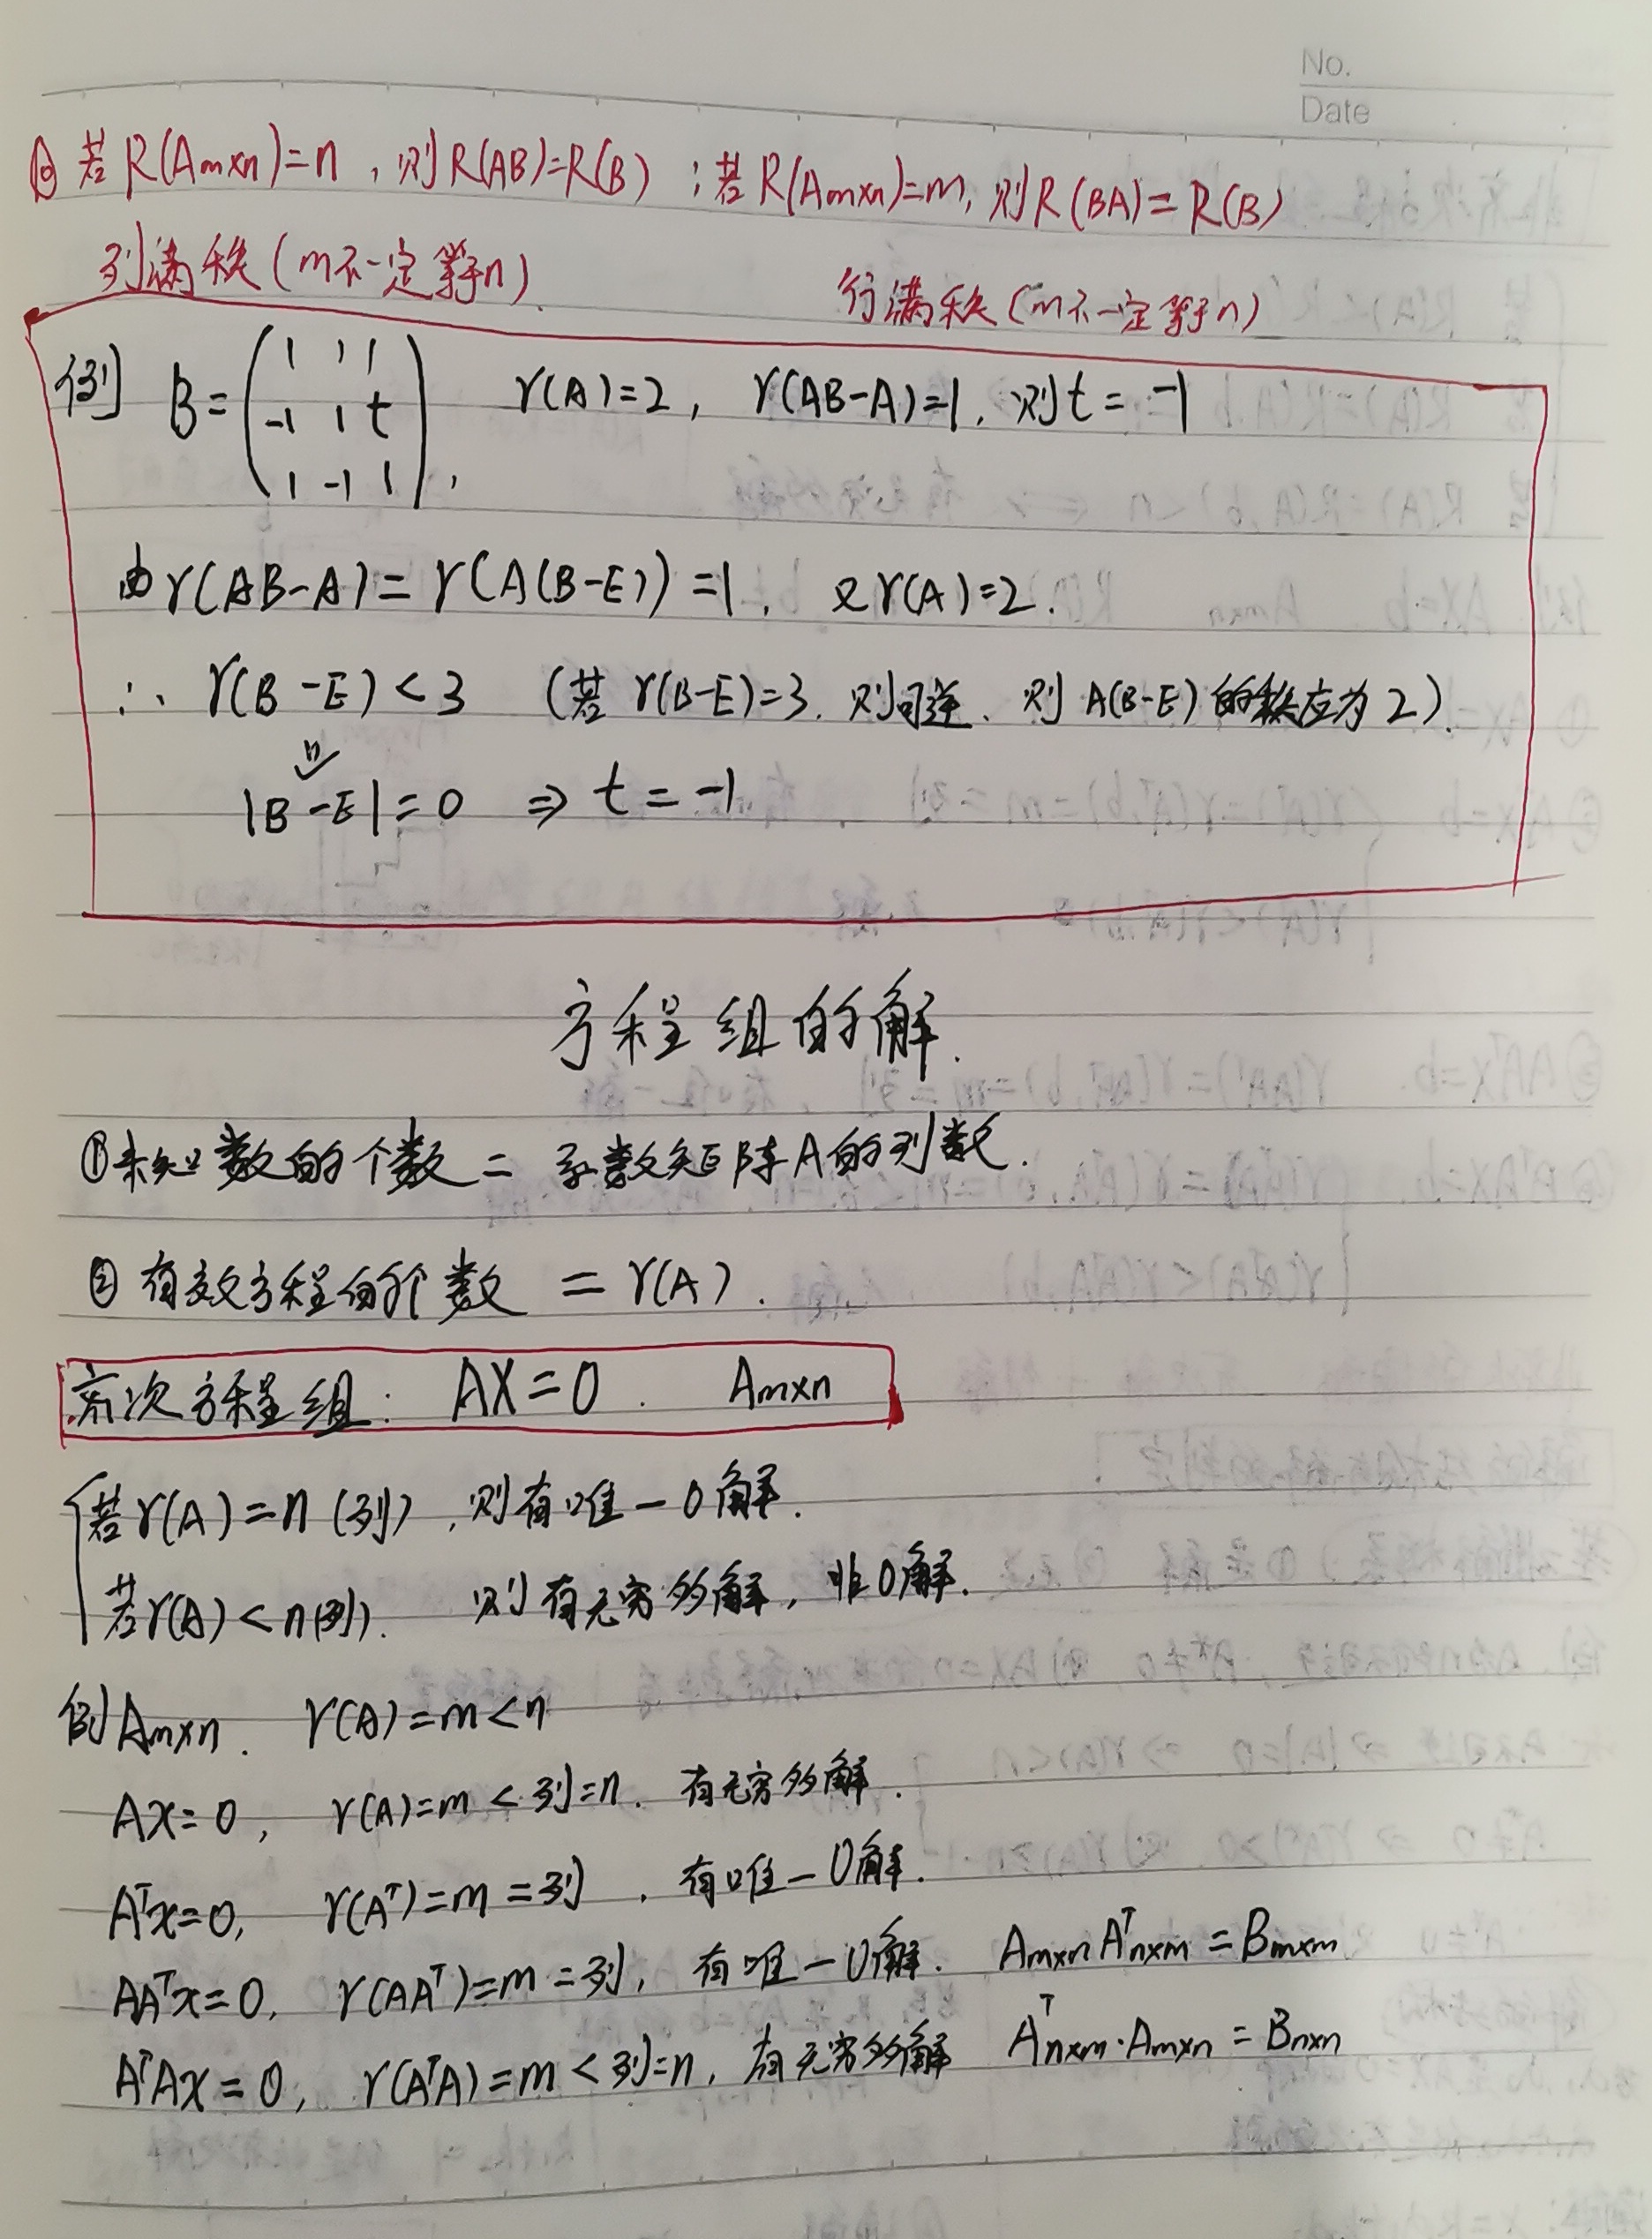 No.
Date
⑩ 若 R(Am×n)=n，则R(AB)=R(B)；若R(Am×n)=m，则R(BA)=R(B)
列满秩(m不一定等于n)
行满秩(m不一定等于n)
例 B=
1 1 1
-1 1 t
1 -1 1
r(A)=2, r(AB-A)=1, 则t=-1
由r(AB-A)=r(A(B-E))=1, 又r(A)=2.
∴ r(B-E)<3 (若 r(B-E)=3, 则可逆, 则 A(B-E)的秩应为2).
|B-E|=0 ⇒ t=-1
方程组的解.
①未知数的个数 = 系数矩阵A的列数.
② 有效方程的个数 = r(A).
齐次方程组: AX=0. Am×n
若r(A)=n(列), 则有唯一0解.
若r(A)<n(列). 则有无穷多解, 非0解.
例 Am×n. r(A)=m<n
Ax=0, r(A)=m<列=n. 有无穷多解.
Aᵀx=0, r(Aᵀ)=m=列, 有唯一0解.
AAᵀx=0, r(AAᵀ)=m=列, 有唯一0解. Am×nAᵀn×m=Bm×m
AᵀAx=0, r(AᵀA)=m<列=n, 有无穷多解 Aᵀn×m·Am×n=Bn×n